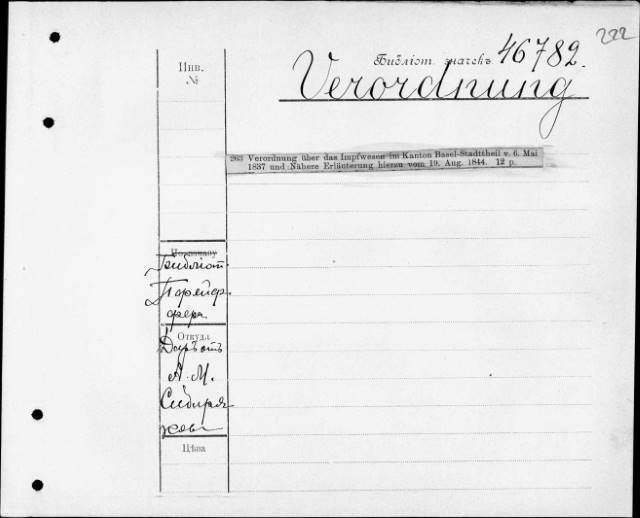 222
Инв.
№
Библіот. значекъ 46782.
Verordnung
263 Verordnung über das Impfwesen im Kanton Basel-Stadttheil v. 6. Mai
1837 und Nähere Erläuterung hierzu vom 19. Aug. 1844. 12 p.
Библіот.
Порейф
фера.
Откуда
Даръ отъ
А. М.
Сибиря
кова
Цѣна